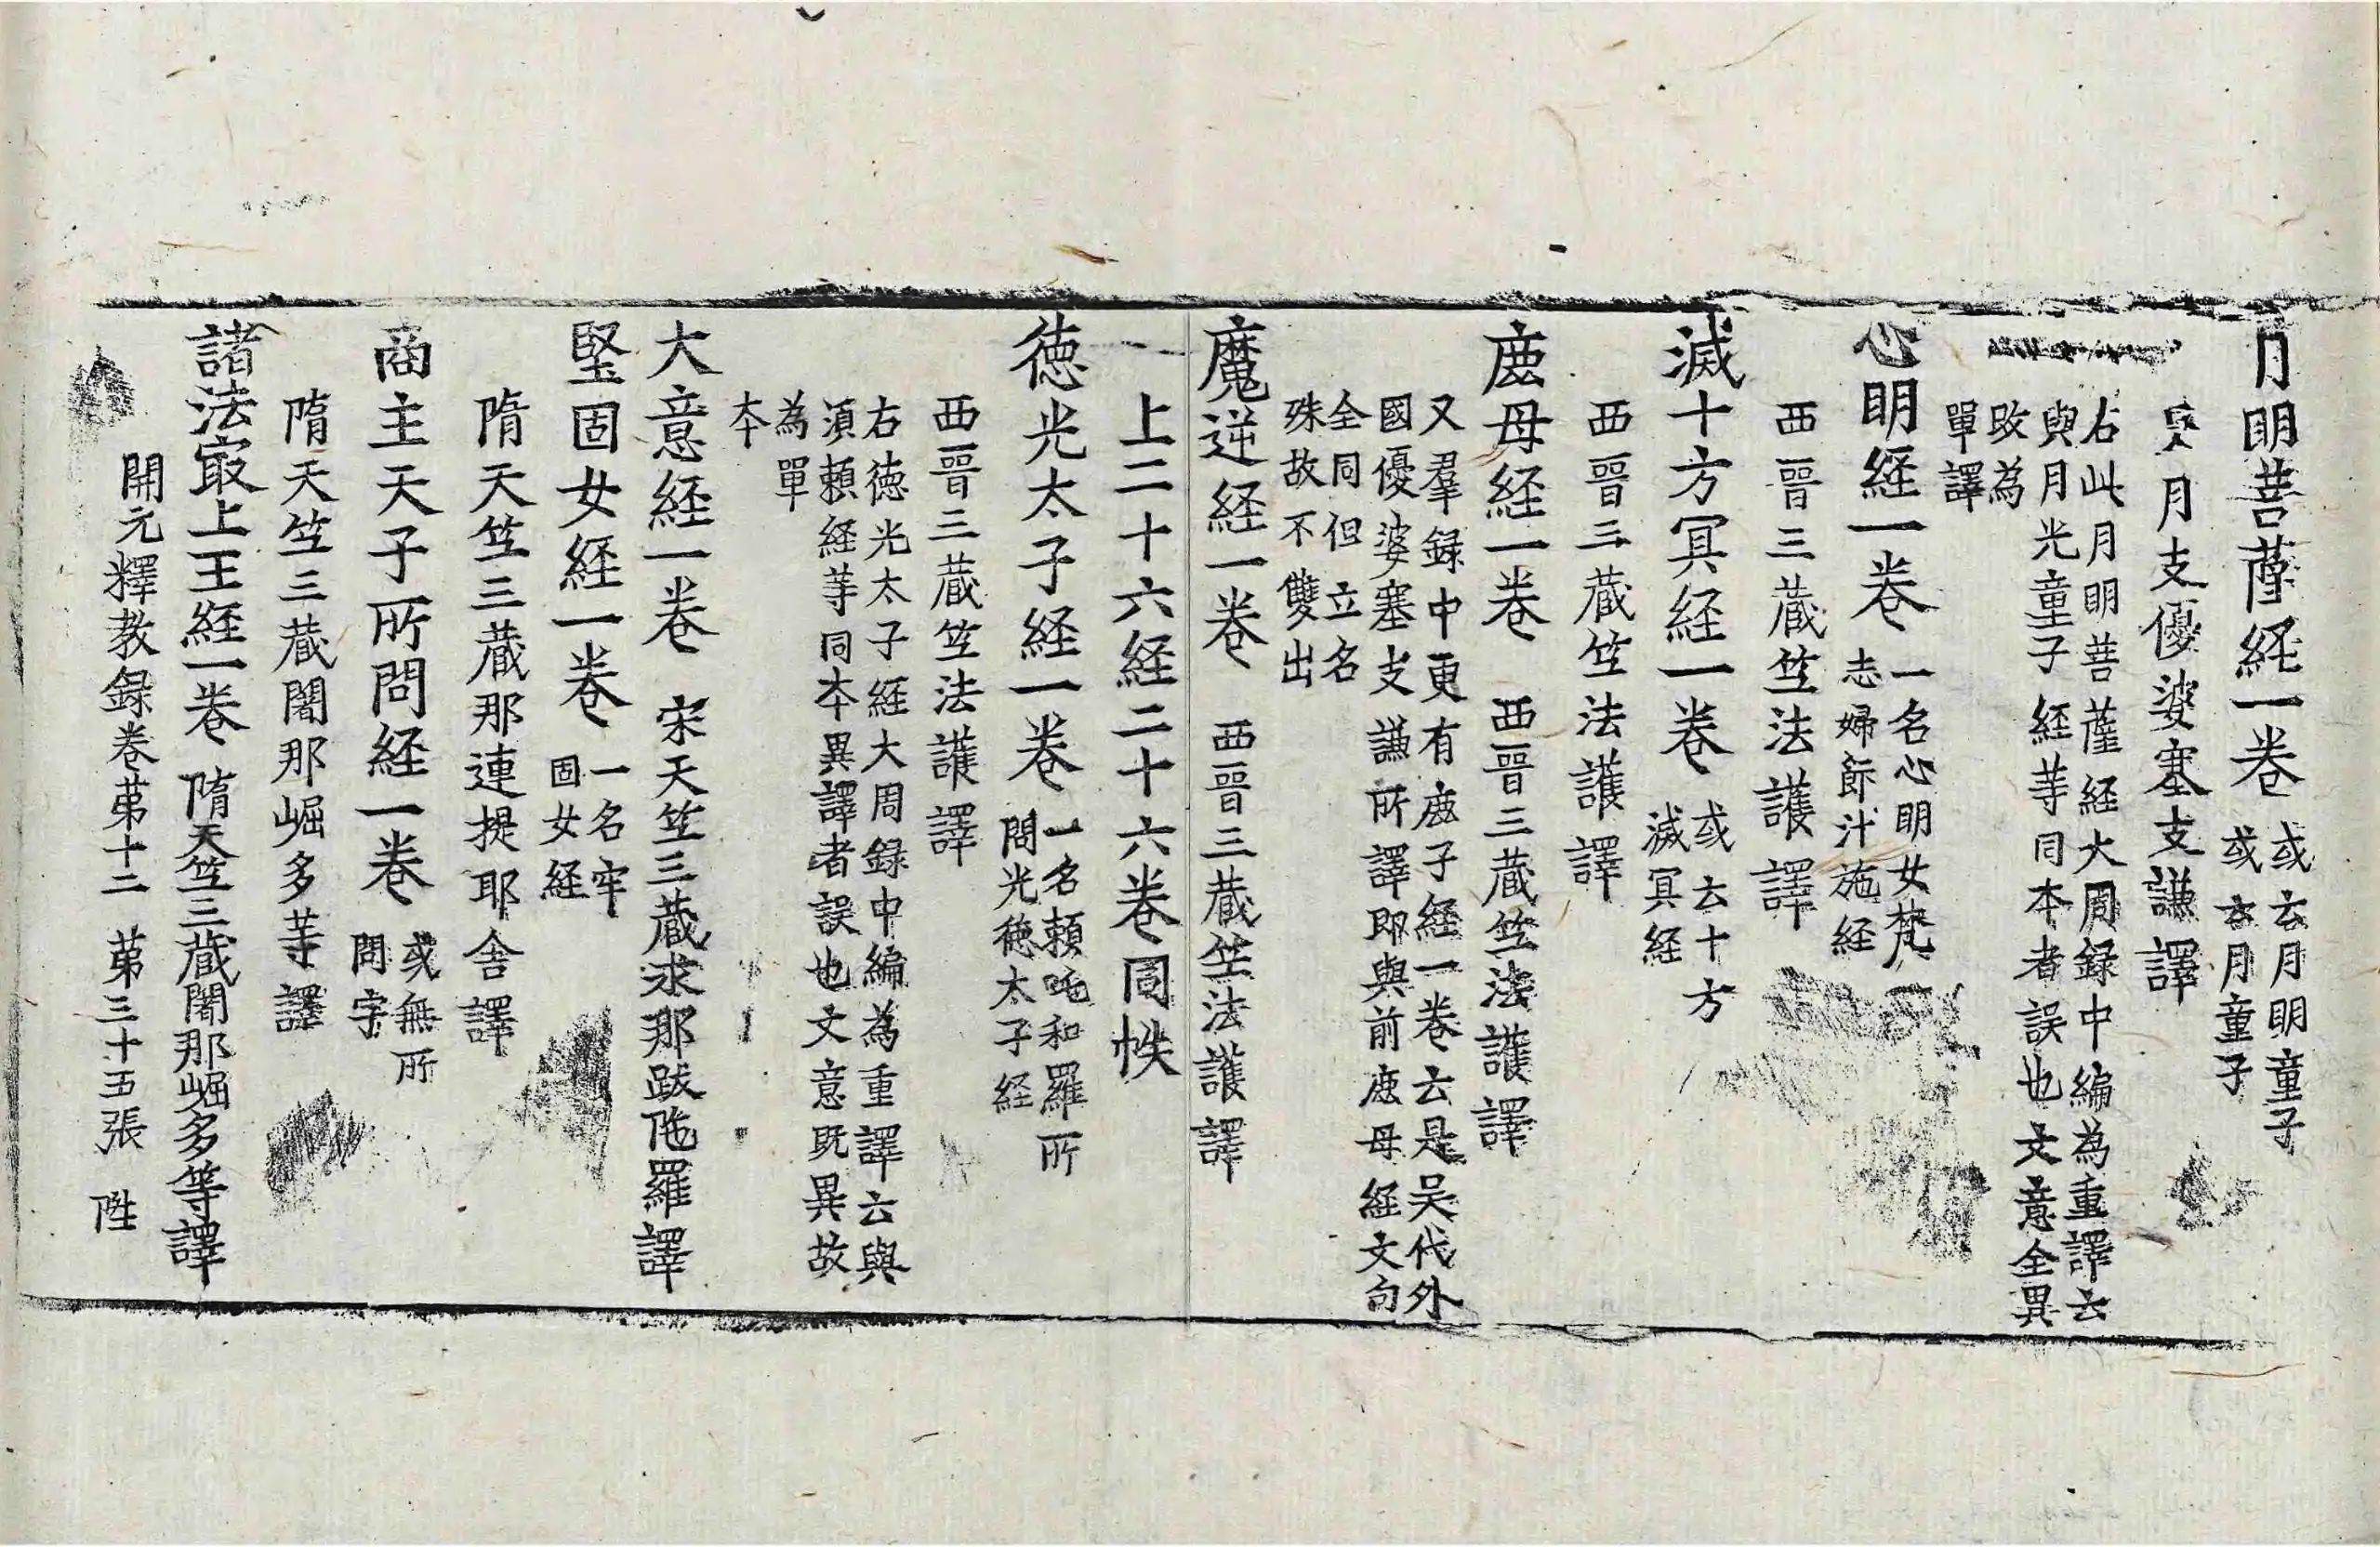 月明菩薩経一卷 或云月明童子
或云月童子
吴月支優婆塞支謙譯
右此月明菩薩経大周録中編為重譯云
與月光童子経等同本者誤也文意全異
故為
單譯
心明経一卷 一名心明女梵
志婦飰汁施経
西晉三藏竺法護譯
滅十方冥経一卷 或云十方
滅冥経
西晉三藏竺法護譯
鹿母経一卷 西晉三藏竺法護譯
又羣録中更有鹿子経一卷云是吴代外
國優婆塞支謙所譯即與前鹿母経文句
全同但立名
殊故不雙出
魔逆経一卷 西晉三藏竺法護譯
上二十六経二十六卷同帙
徳光太子経一卷 一名頼吒和羅所
問光徳太子経
西晉三藏竺法護譯
右徳光太子経大周録中編為重譯云與
須頼経等同本異譯者誤也文意既異故
為單
本
大意経一卷 宋天竺三藏求那跋陁羅譯
堅固女経一卷 一名牢
固女経
隋天竺三藏那連提耶舍譯
商主天子所問経一卷 或無所
問字
隋天竺三藏闍那崛多等譯
諸法㝡上王経一卷 隋天竺三藏闍那崛多等譯
開元釋教録卷苐十二 苐三十五張 陞